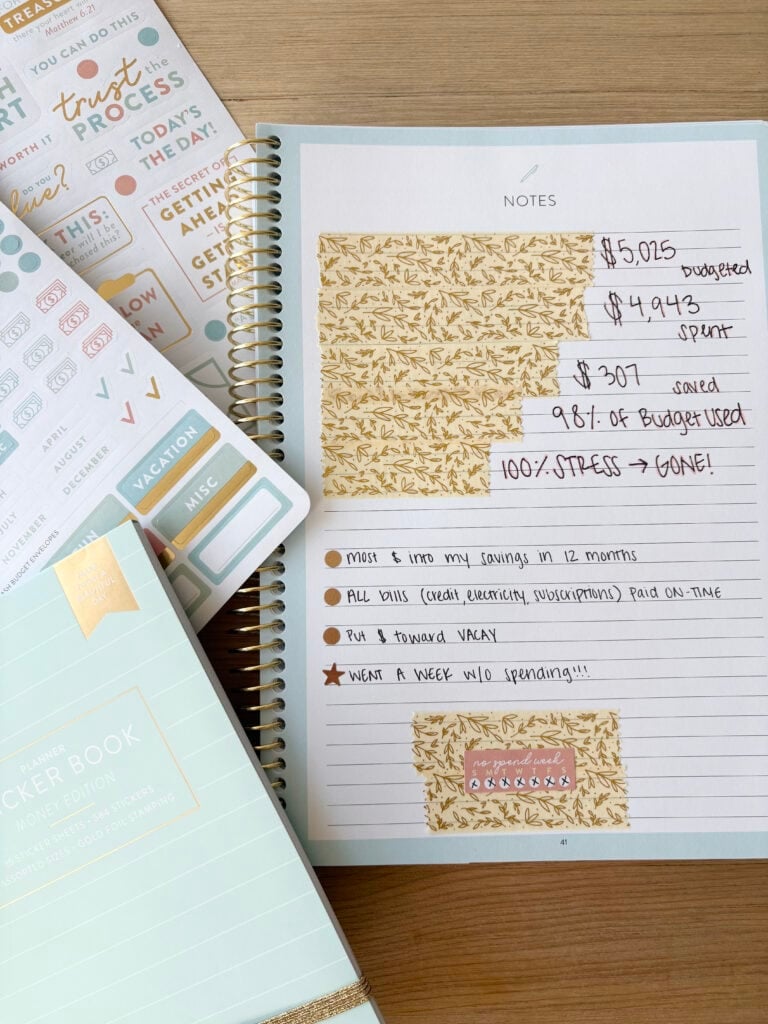 TREASU
there your heart will
Matthew 6:21
YOU CAN DO THIS
trust the
PROCESS
WORTH IT
TODAY'S
THE DAY!
DO YOU
THE SECRET OF
GETTING
AHEA
IS
GETT
STA
THIS:
will I be
purchased this?
APRIL
AUGUST
DECEMBER
JULY
NOVEMBER
VACATION
MISC
BUDGET ENVELOPES
PLANNER
CKER BOOK
MONEY EDITION
STICKER SHEETS • 584 STICKERS
ASSORTED SIZES • GOLD FOIL STAMPING
NOTES
$5,025
budgeted
$4,943
spent
$307 saved
98% OF Budget Used
100% STRESS → GONE!
most $ into my savings in 12 months
ALL bills (credit, electricity, subscriptions) paid ON-TIME
PUT $ toward VACAY
WENT A WEEK w/o spending!!!
no spend week
S M T W T F S
41